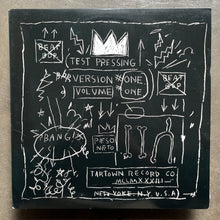 BEAT BOP
TEST PRESSING
VERSION ONE
VOLUME ONE
BEAT BOP
BANG!
TARTOWN RECORD CO
NEW YORK, N.Y. U.S.A